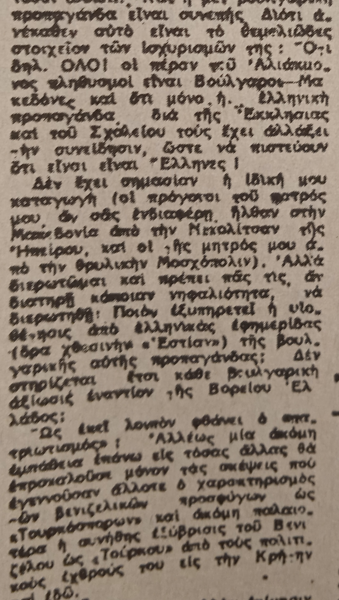 προπαγάνδα εἶναι συνεπής. Διότι ἀ-
νέκαθεν αὐτὸ εἶναι τὸ θεμελιῶδες
στοιχεῖον τῶν ἰσχυρισμῶν της: "Ὅτι
δηλ. ΟΛΟΙ οἱ πέραν τοῦ Ἀλιάκμο-
νος πληθυσμοὶ εἶναι Βούλγαροι—Μα
κεδόνες καὶ ὅτι μόνο ἡ ἑλληνικὴ
προπαγάνδα διὰ τῆς Ἐκκλησίας
καὶ τοῦ Σχολείου τοὺς ἔχει ἀλλάξει
τὴν συνείδησιν, ὥστε νὰ πιστεύουν
ὅτι εἶναι εἶναι Ἕλληνες!
Δὲν ἔχει σημασίαν ἡ ἰδική μου
καταγωγὴ (οἱ πρόγονοι τοῦ πατρός
μου, ἂν σᾶς ἐνδιαφέρῃ, ἦλθαν στὴν
Μακεδονία ἀπὸ τὴν Νεκολίτσαν τῆς
Ἠπείρου, καὶ οἱ τῆς μητρός μου ἀ-
πὸ τὴν θρυλικὴν Μοσχόπολιν). Ἀλλὰ
διερωτῶμαι καὶ πρέπει πᾶς τις, ἂν
διατηρῇ κάποιαν νηφαλιότητα, νὰ
διερωτηθῇ: Ποιὸν ἐξυπηρετεῖ ἡ υἱο-
θέτησις ἀπὸ ἑλληνικὰς ἐφημερίδας
(ὅρα χθεσινὴν «Ἑστίαν») τῆς βουλ-
γαρικῆς αὐτῆς προπαγάνδας; Δὲν
στηρίζεται ἔτσι κάθε βουλγαρικὴ
ἀξίωσις ἐναντίον τῆς Βορείου Ἑλ
λάδος;
Ὡς ἐκεῖ λοιπὸν φθάνει ὁ «πα-
τριωτισμός»; Ἀλλέως μία ἀκόμη
ἐμπάθεια ἐπάνω εἰς τόσας ἄλλας θὰ
ἐπροκαλοῦσε μόνον τὰς σκέψεις ποὺ
ἐγεννοῦσαν ἄλλοτε ὁ χαρακτηρισμὸς
τῶν βενιζελικῶν προσφύγων ὡς
«Τουρκόσπορων» καὶ ἀκόμη παλαιο-
τέρα ἡ συνήθης ἐξύβρισις τοῦ Βενι
ζέλου ὡς «Τούρκου» ἀπὸ τοὺς πολιτι-
κοὺς ἐχθρούς του εἰς τὴν Κρήτην
καὶ ἐδῶ.